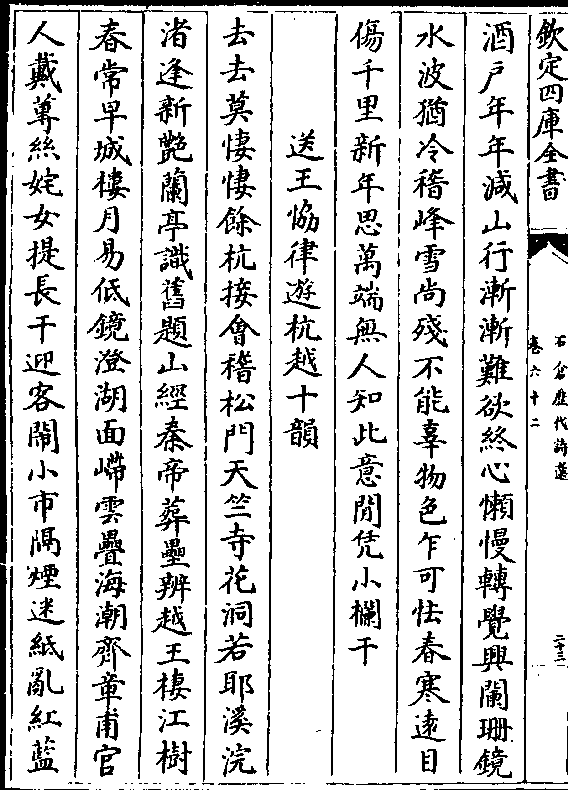 欽定四庫全書
石倉歷代詩選
卷六十二
二十三
酒戶年年減山行漸漸難欲終心懶慢轉覺興闌珊鏡
水波猶冷稽峰雪尚殘不能辜物色乍可怯春寒逺目
傷千里新年思萬端無人知此意閒凭小欄干
送王協律遊杭越十韻
去去莫悽悽餘杭接會稽松門天竺寺花洞若耶溪浣
渚逢新艶蘭亭識舊題山經秦帝葬壘辨越王棲江樹
春常早城樓月易低鏡澄湖面㠑雲疊海潮齊章甫官
人戴蓴絲姹女提長干迎客鬧小市隔煙迷紙亂紅藍